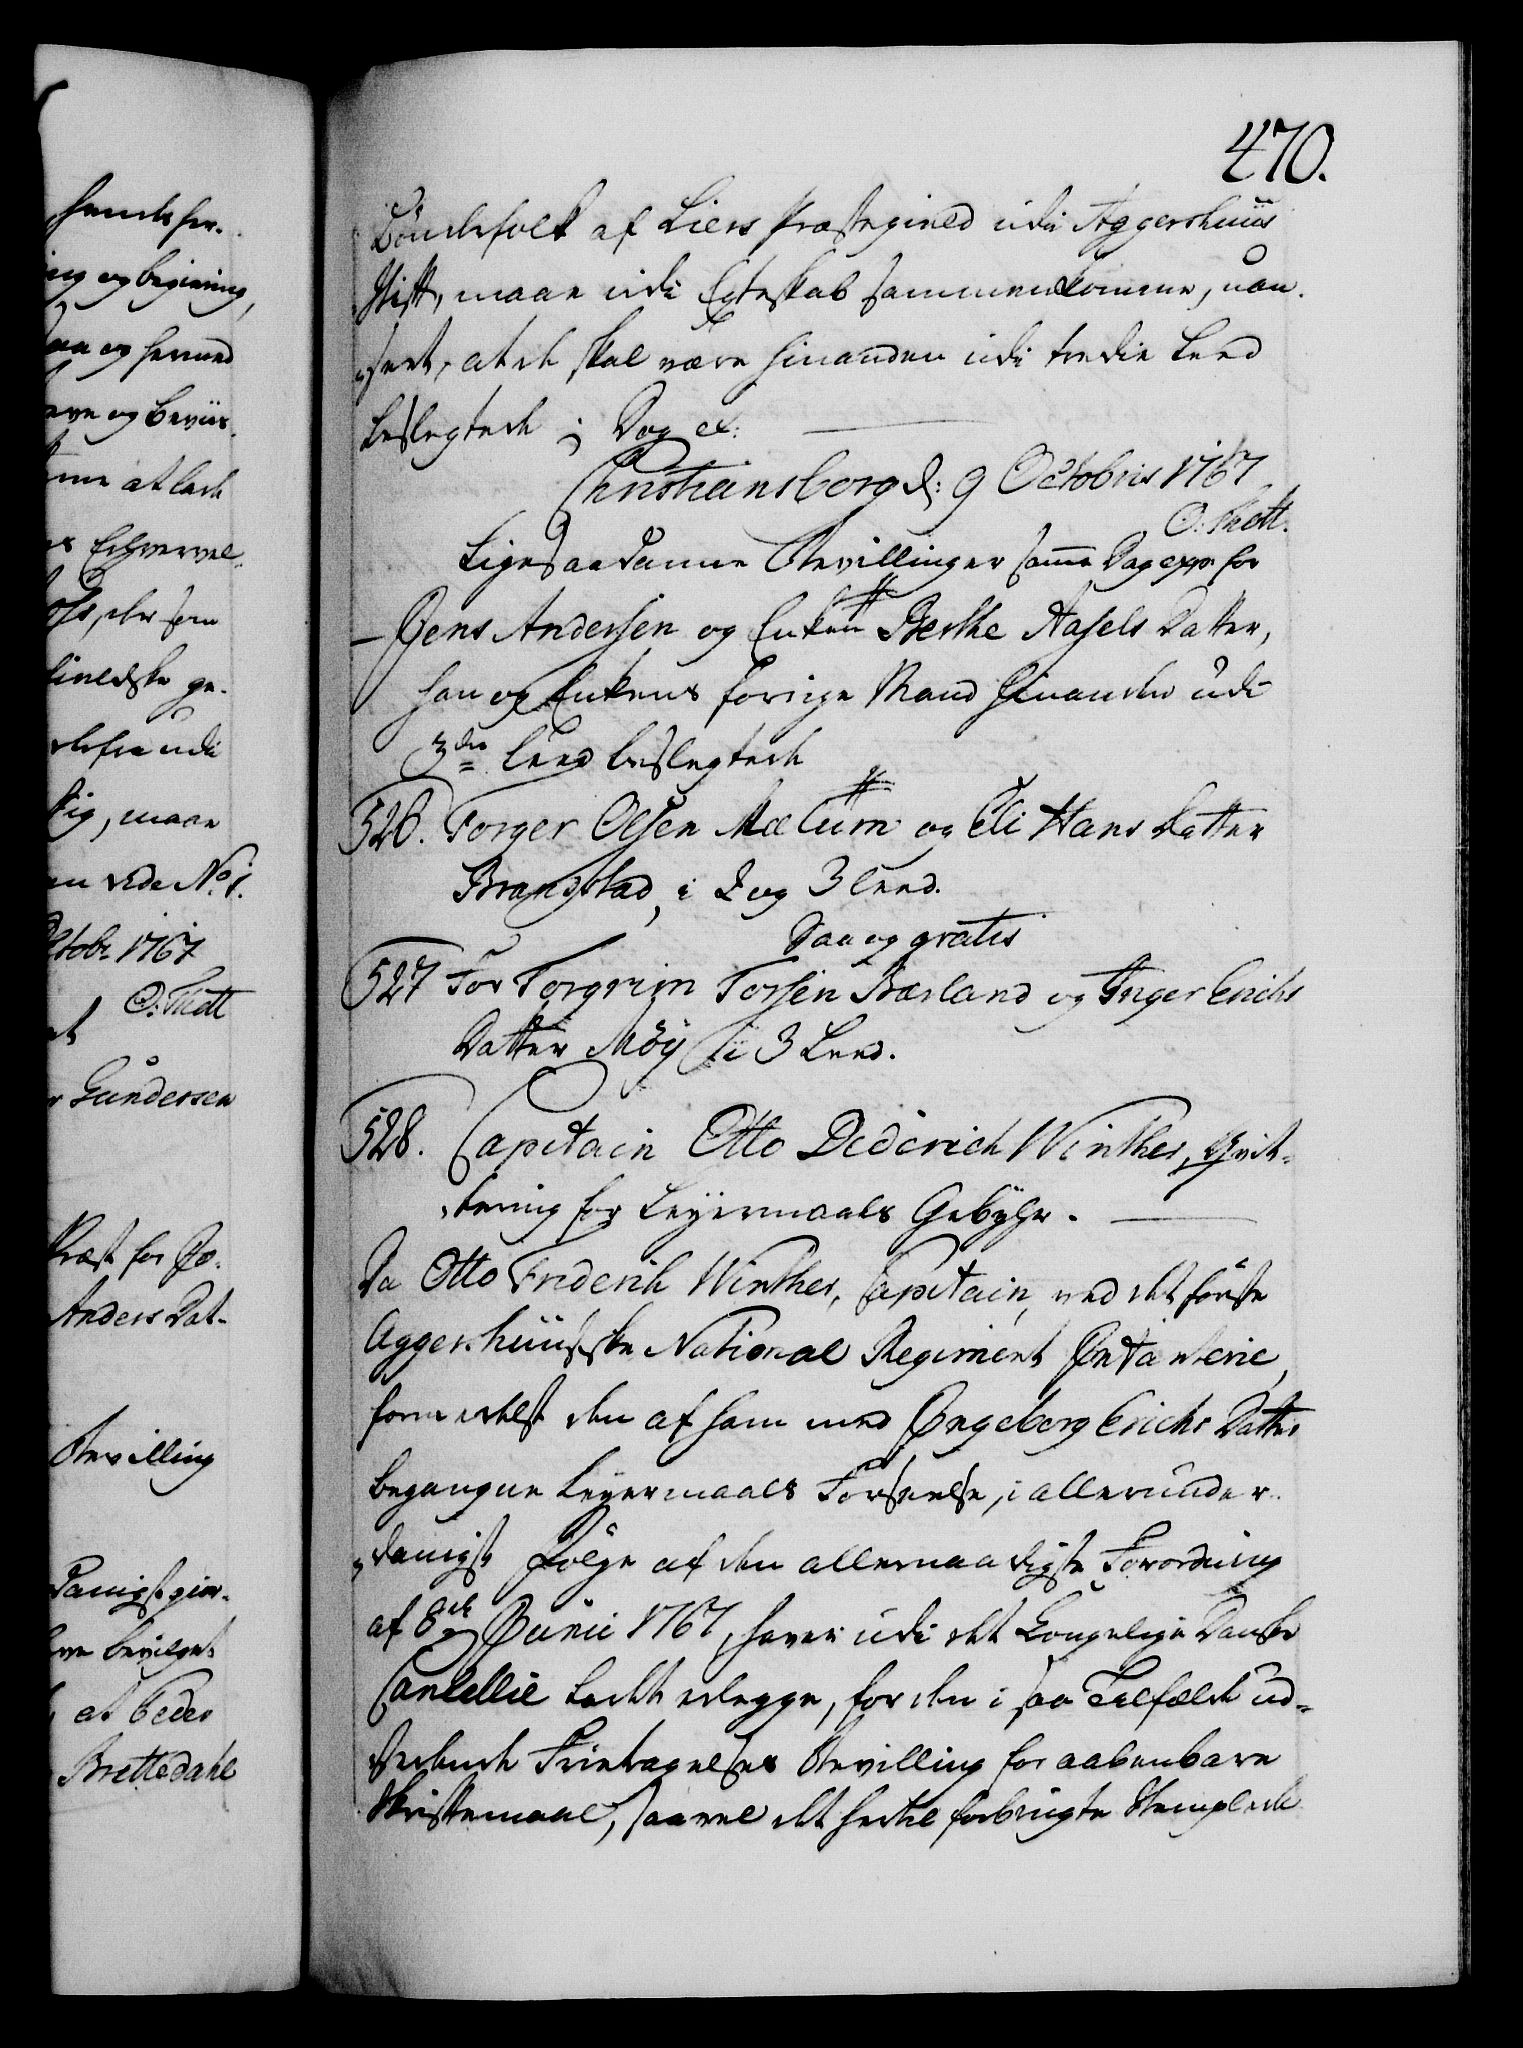 470.
Bøndefolk af Liers Præstegield udi Aggershuus
Stift, maae udi Egteskab sammenkomme, uan-
seet, at de skal være hinanden udi tredie Leed
beslegtede; Dog et:
Christiansborg d: 9 Octobris 1767
O. Thott.
Ligesaadanne Bevillinger samme Dag exp: for
Jens Andersen og Enken Berthe Axsels Datter,
han og Enkens forrige Mand hinanden udi
3die Leed beslegtede
526. Torger Olsen Mælum og Eli Hans Datter
Brangstad, i 2 og 3 Leed.
Daa og gratis
527 For Torgrim Torsen Børland og Inger Erichs
Datter Möy i 3 Leed.
528. Capitain Otto Dederich Winther, Qvit-
tering for Leyermaals Gebyhr.
Da Otto Friderik Winther, Capitain ved det første
Aggershuusiske National Regiment Infanterie,
formedelst den af ham med Ingeborg Erichs Datter
begangne Leyermaals Forseelse, i allerunder-
danigst Følge af den allernaadigste Forordning
af 8de Junii 1767, haver udi det Kongelige Danske
Cancellie ladet erlegge, for den i saa Tilfælde ud-
stædende Frietagelses Bevilling for aabenbare
Skriftemaal, saavel det hertil forbrugte Stemplede
hends for-
ing og begiering,
aa og hermed
ave og beviis
at lade
Erhvervel-
der som
ge-
udi
maae
vide No 1.
Octobr 1767
O. Thott
Gundersen
Præst for
Anders Dat-
Bevilling
danigst giør-
bevilget
at Peder
Brettedahl